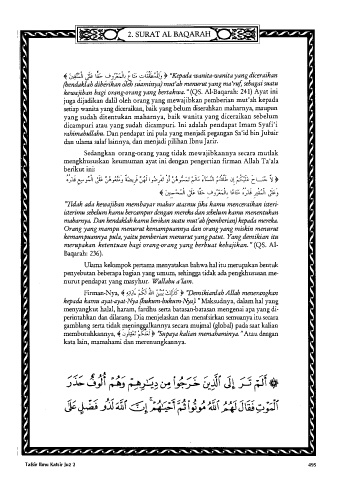 2. SURAT AL BAQARAH
﴿ وَلِلْمُطَلَّقَاتِ مَتَاعٌ بِالْمَعْرُوفِ حَقًّا عَلَى الْمُتَّقِينَ ﴾ "Kepada wanita-wanita yang diceraikan
(hendaklah diberikan oleh suaminya) mut'ah menurut yang ma'ruf, sebagai suatu
kewajiban bagi orang-orang yang bertakwa." (QS. Al-Baqarah: 241) Ayat ini
juga dijadikan dalil oleh orang yang mewajibkan pemberian mut'ah kepada
setiap wanita yang diceraikan, baik yang belum diserahkan maharnya, maupun
yang sudah ditentukan maharnya, baik wanita yang diceraikan sebelum
dicampuri atau yang sudah dicampuri. Ini adalah pendapat Imam Syafi'i
rahimahullahu. Dan pendapat ini pula yang menjadi pegangan Sa'id bin Jubair
dan ulama salaf lainnya, dan menjadi pilihan Ibnu Jarir.
Sedangkan orang-orang yang tidak mewajibkannya secara mutlak
mengkhususkan keumuman ayat ini dengan pengertian firman Allah Ta'ala
berikut ini:
﴿ لاَ جُنَاحَ عَلَيْكُمْ إِن طَلَّقْتُمُ النِّسَاءَ مَالَمْ تَمَسُّوهُنَّ أَوْ تَفْرِضُوا لَهُنَّ فَرِيضَةً وَمَتِّعُوهُنَّ عَلَى الْمُوسِعِ قَدَرُهُ
وَعَلَى الْمُقْتِرِ قَدَرُهُ مَتَاعًا بِالْمَعْرُوفِ حَقًّا عَلَى الْمُحْسِنِينَ ﴾
"Tidak ada kewajiban membayar mahar atasmu jika kamu menceraikan isteri-
isterimu sebelum kamu bercampur dengan mereka dan sebelum kamu menentukan
maharnya. Dan hendaklah kamu berikan suatu mut'ah (pemberian) kepada mereka.
Orang yang mampu menurut kemampuannya dan orang yang miskin menurut
kemampuannya pula, yaitu pemberian menurut yang patut. Yang demikian itu
merupakan ketentuan bagi orang-orang yang berbuat kebajikan." (QS. Al-
Baqarah: 236).
Ulama kelompok pertama menyatakan bahwa hal itu merupakan bentuk
penyebutan beberapa bagian yang umum, sehingga tidak ada pengkhususan me-
nurut pendapat yang masyhur. Wallahu a'lam.
Firman-Nya, ﴿ كَذَلِكَ يُبَيِّنُ اللهُ لَكُمْ ءَايَاتِهِ ﴾ "Demikianlah Allah menerangkan
kepada kamu ayat-ayat-Nya (hukum-hukum-Nya)." Maksudnya, dalam hal yang
menyangkut halal, haram, fardhu serta batasan-batasan mengenai apa yang di-
perintahkan dan dilarang. Dia menjelaskan dan menafsirkan semuanya itu secara
gamblang serta tidak meninggalkannya secara mujmal (global) pada saat kalian
membutuhkannya, ﴿ لَعَلَّكُمْ تَعْقِلُونَ ﴾ "Supaya kalian memahaminya." Atau dengan
kata lain, memahami dan merenungkannya.
۞ أَلَمْ تَرَ إِلَى الَّذِينَ خَرَجُوا مِن دِيَارِهِمْ وَهُمْ أُلُوفٌ حَذَرَ
الْمَوْتِ فَقَالَ لَهُمُ اللَّهُ مُوتُوا ثُمَّ أَحْيَاهُمْ إِنَّ اللَّهَ لَذُو فَضْلٍ عَلَى
Tafsir Ibnu Katsir Juz 2
495